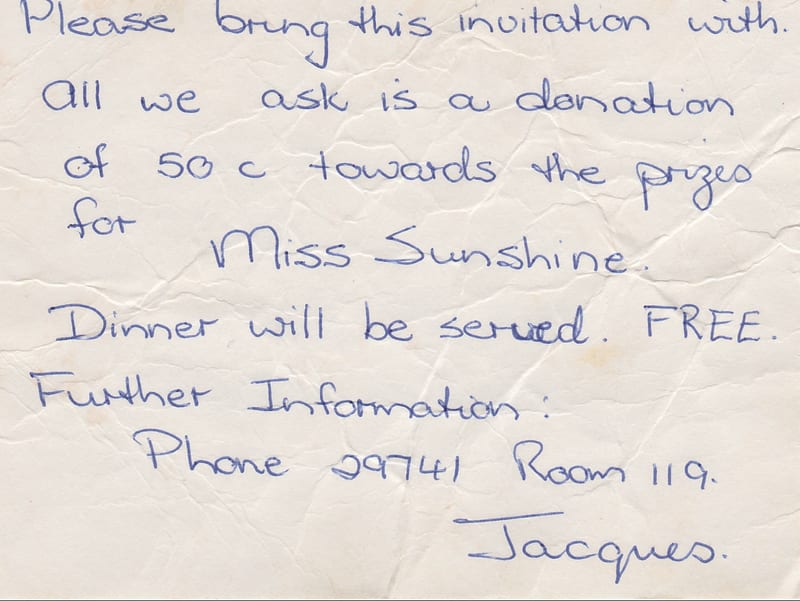 Please bring this invitation with.
All we ask is a donation
of 50 c towards the prizes
for Miss Sunshine.
Dinner will be served. FREE.
Further Information:
Phone 29741 Room 119.
Jacques.